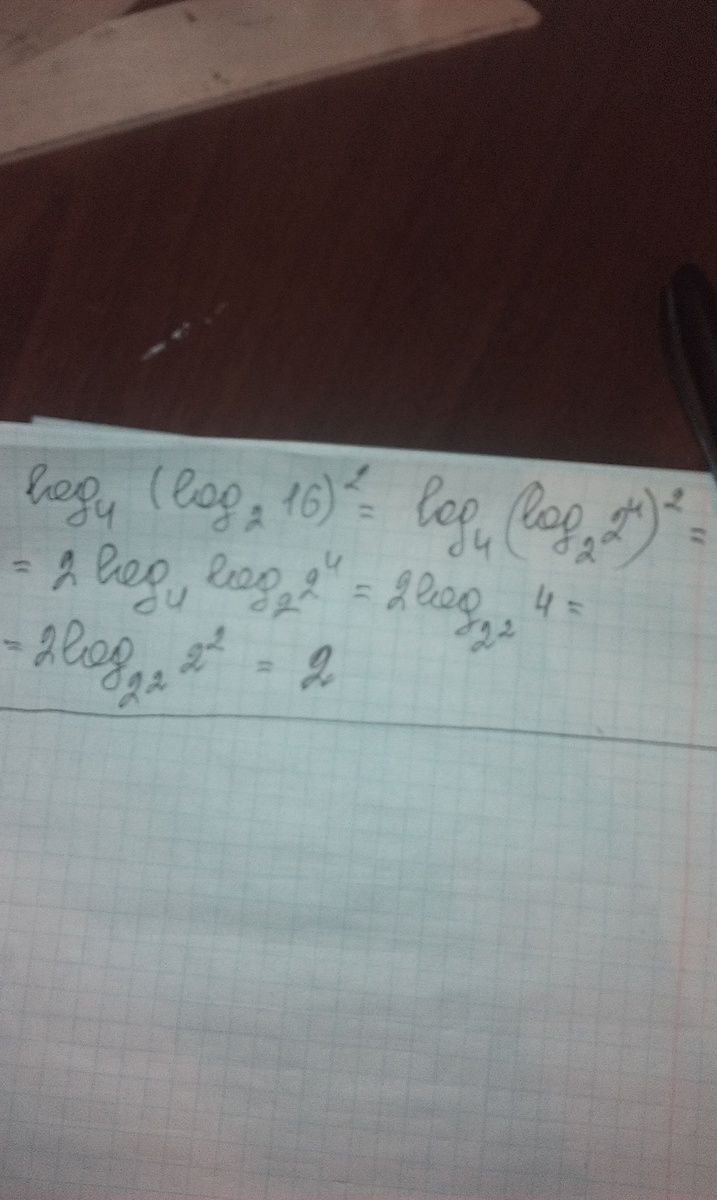 log₄ (log₂ 16)² = log₄ (log₂ 2⁴)² =
= 2 log₄ log₂ 2⁴ = 2 log_{2²} 4 =
= 2 log_{2²} 2² = 2